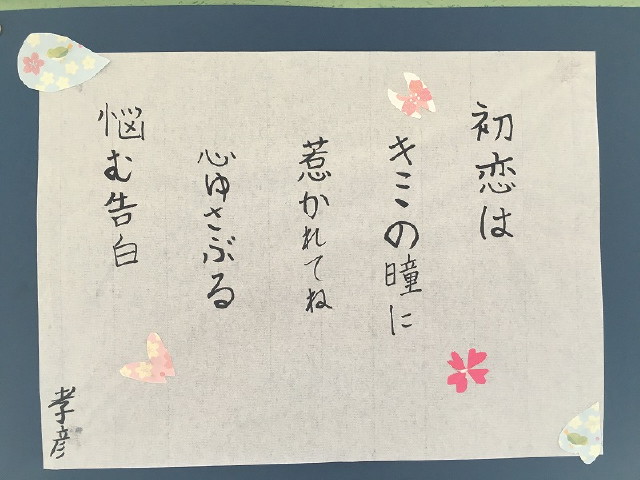 初恋は
キミの瞳に
惹かれてね
心ゆさぶる
悩む告白
孝彦